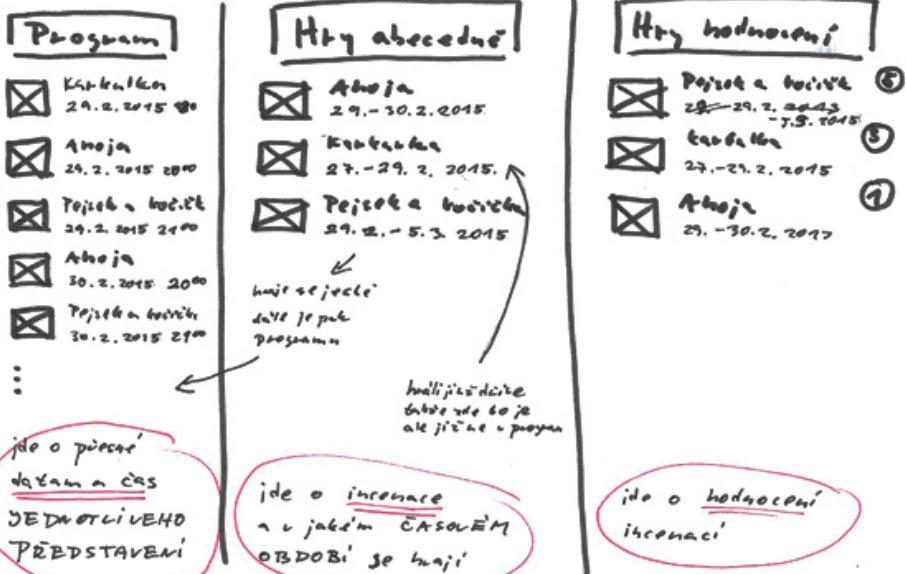 Program
Karkulka
29.2.2015
Ahoja
29.2.2015 2000
Pejsek a kočičk
29.2.2015 2100
Ahoja
30.2.2015 2000
Pejsek a kočičk
30.2.2015 2100
jde o přesné
datum a čas
JEDNOTLIVÉHO
PŘEDSTAVENÍ
Hry abecedně
Ahoja
29.-30.2.2015
Karkulka
27.-29.2.2015.
Pejsek a kočička
29.2.-5.3.2015
hraje se ještě
dále je pak
programu
hráli již dříve
takže zde to je
ale již ne v program
jde o inscenace
a v jakém ČASOVÉM
OBDOBÍ se hrají
Hry hodnocení
Pejsek a kočičk 5
29.2.
-5.3.2015
Karkulka 3
27.-29.2.2015
Ahoja 1
29.-30.2.2015
jde o hodnocení
inscenací